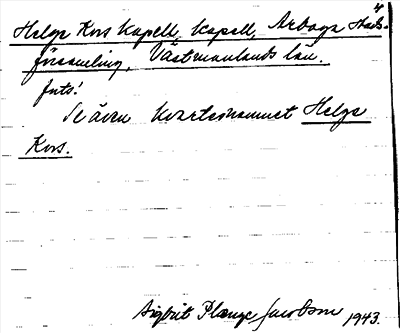 Helge Kors Kapell, Kapell, Arboga Stads-
församling, Västmanlands län.
forts!
Se även kvartersnamnet Helge
Kors.
Sigbrit Plænge Jacobson 1943.